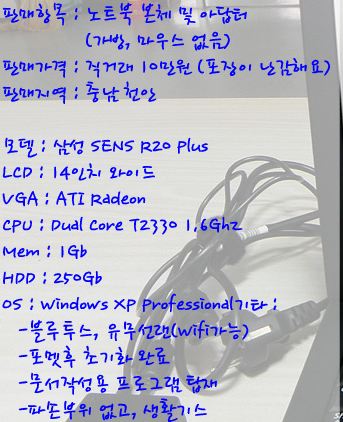 판매항목 : 노트북 본체 및 아답터
(가방, 마우스 없음)
판매가격 : 직거래 10만원 (포장이 난감해요)
판매지역 : 충남 천안
모델 : 삼성 SENS R20 Plus
LCD : 14인치 와이드
VGA : ATI Radeon
CPU : Dual Core T2330 1.6Ghz
Mem : 1Gb
HDD : 250Gb
OS : Windows XP Professional기타 :
-블루투스, 유무선랜(wifi가능)
-포멧후 초기화 완료
-문서작성용 프로그램 탑재
-파손부위 없고, 생활기스